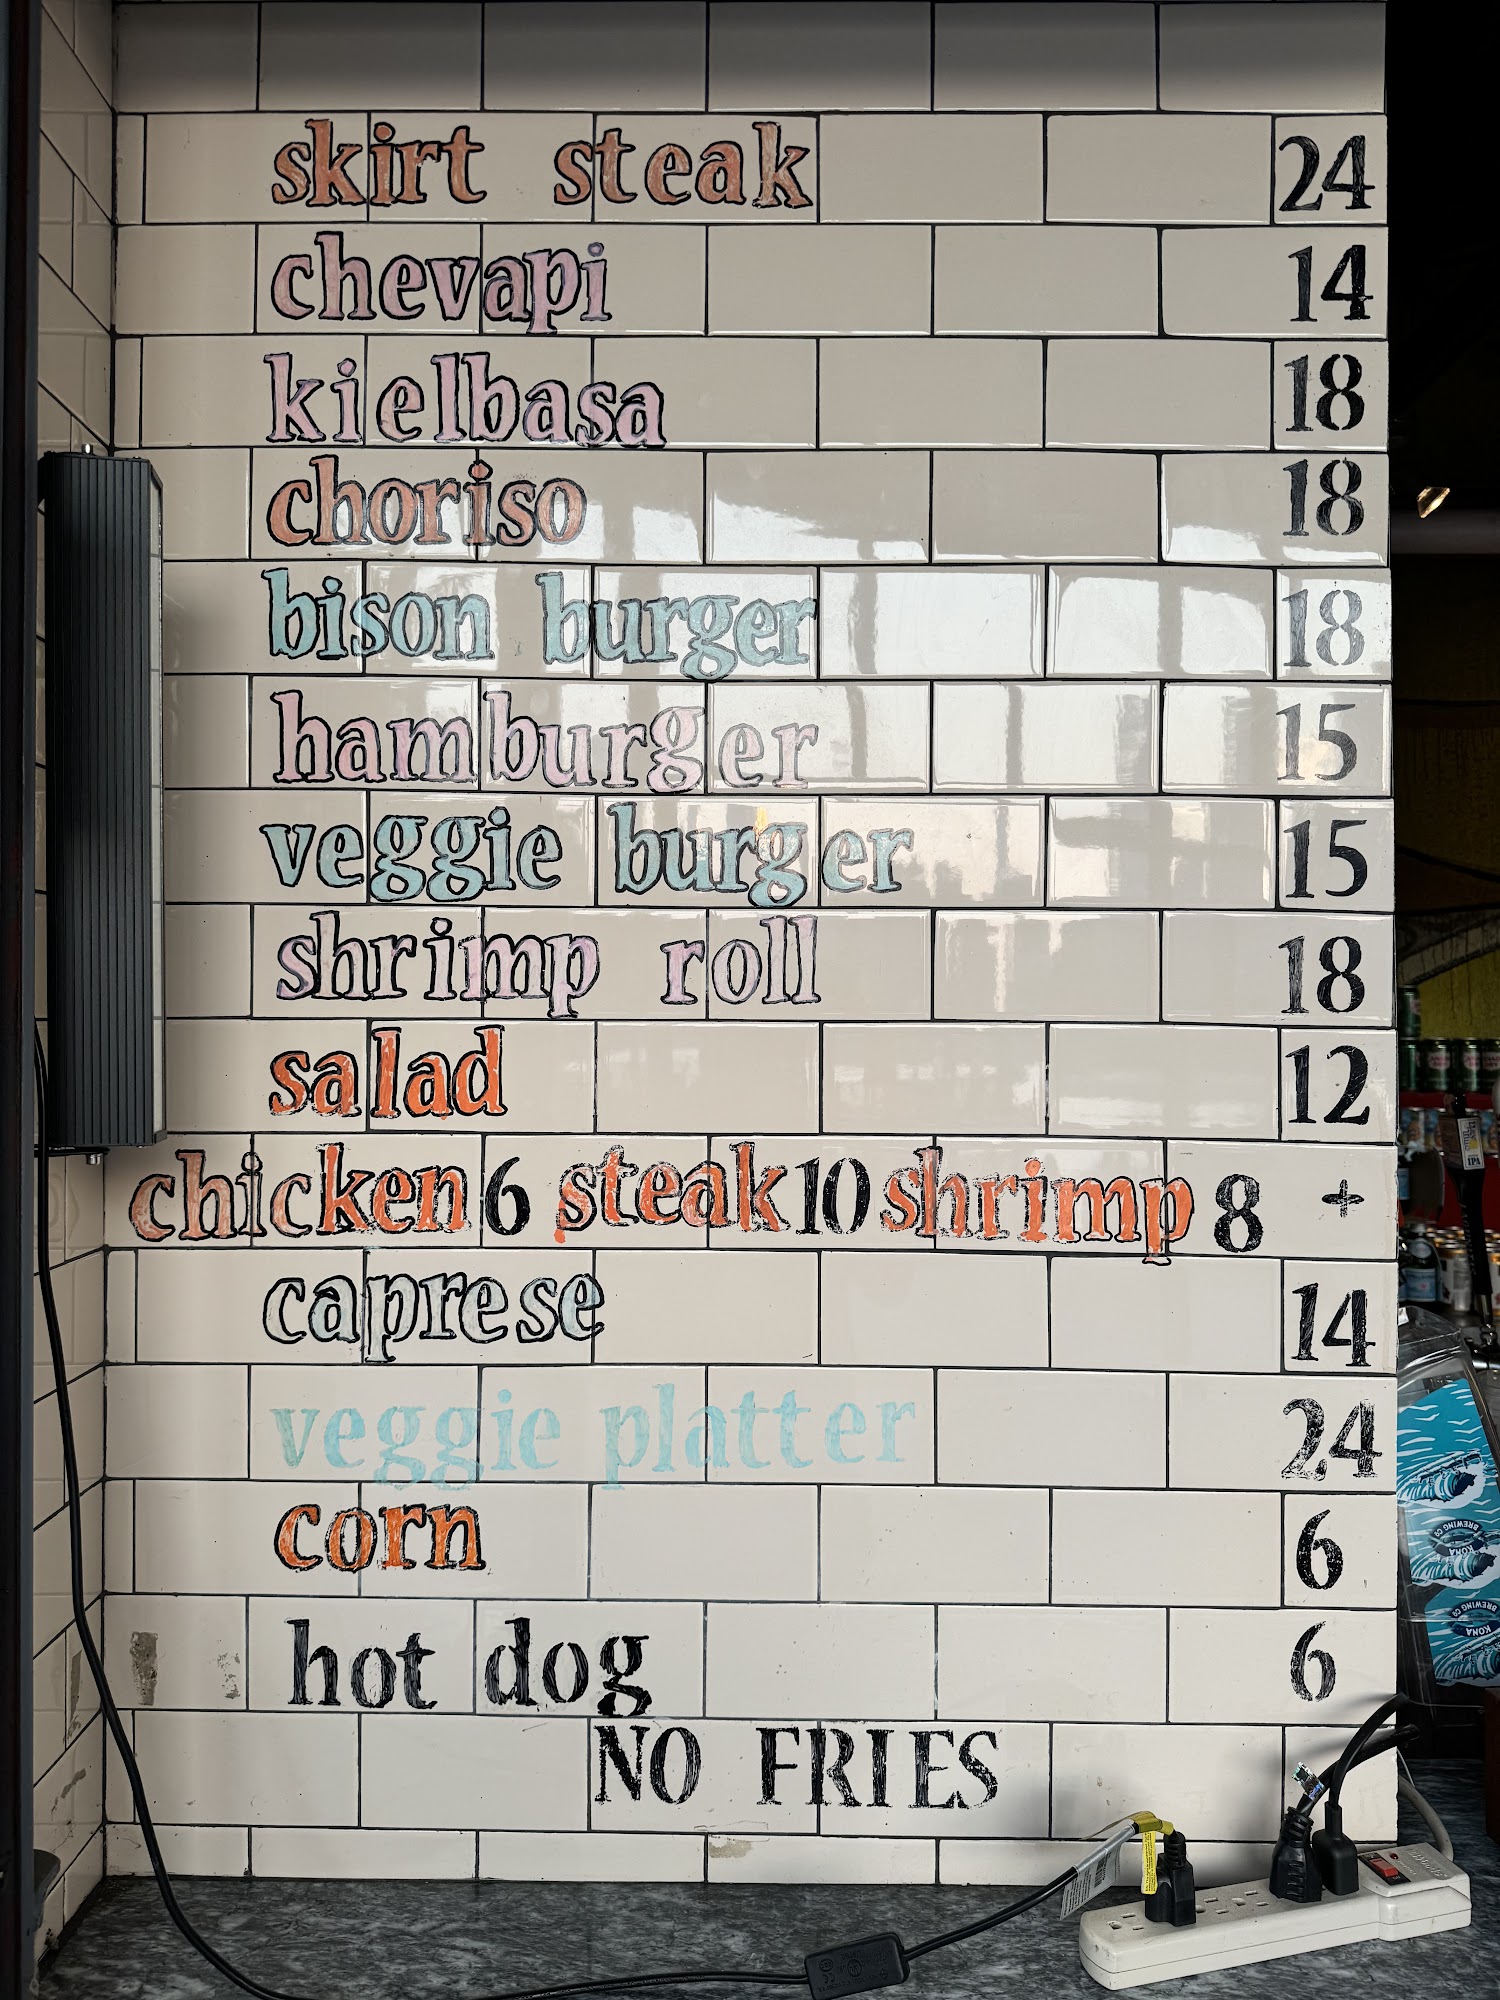 skirt steak 24
chevapi 14
kielbasa 18
choriso 18
bison burger 18
hamburger 15
veggie burger 15
shrimp roll 18
salad 12
chicken 6 steak 10 shrimp 8 +
caprese 14
veggie platter 24
corn 6
hot dog 6
NO FRIES
IPA
KONA
BREWING CO
KONA
BREWING CO